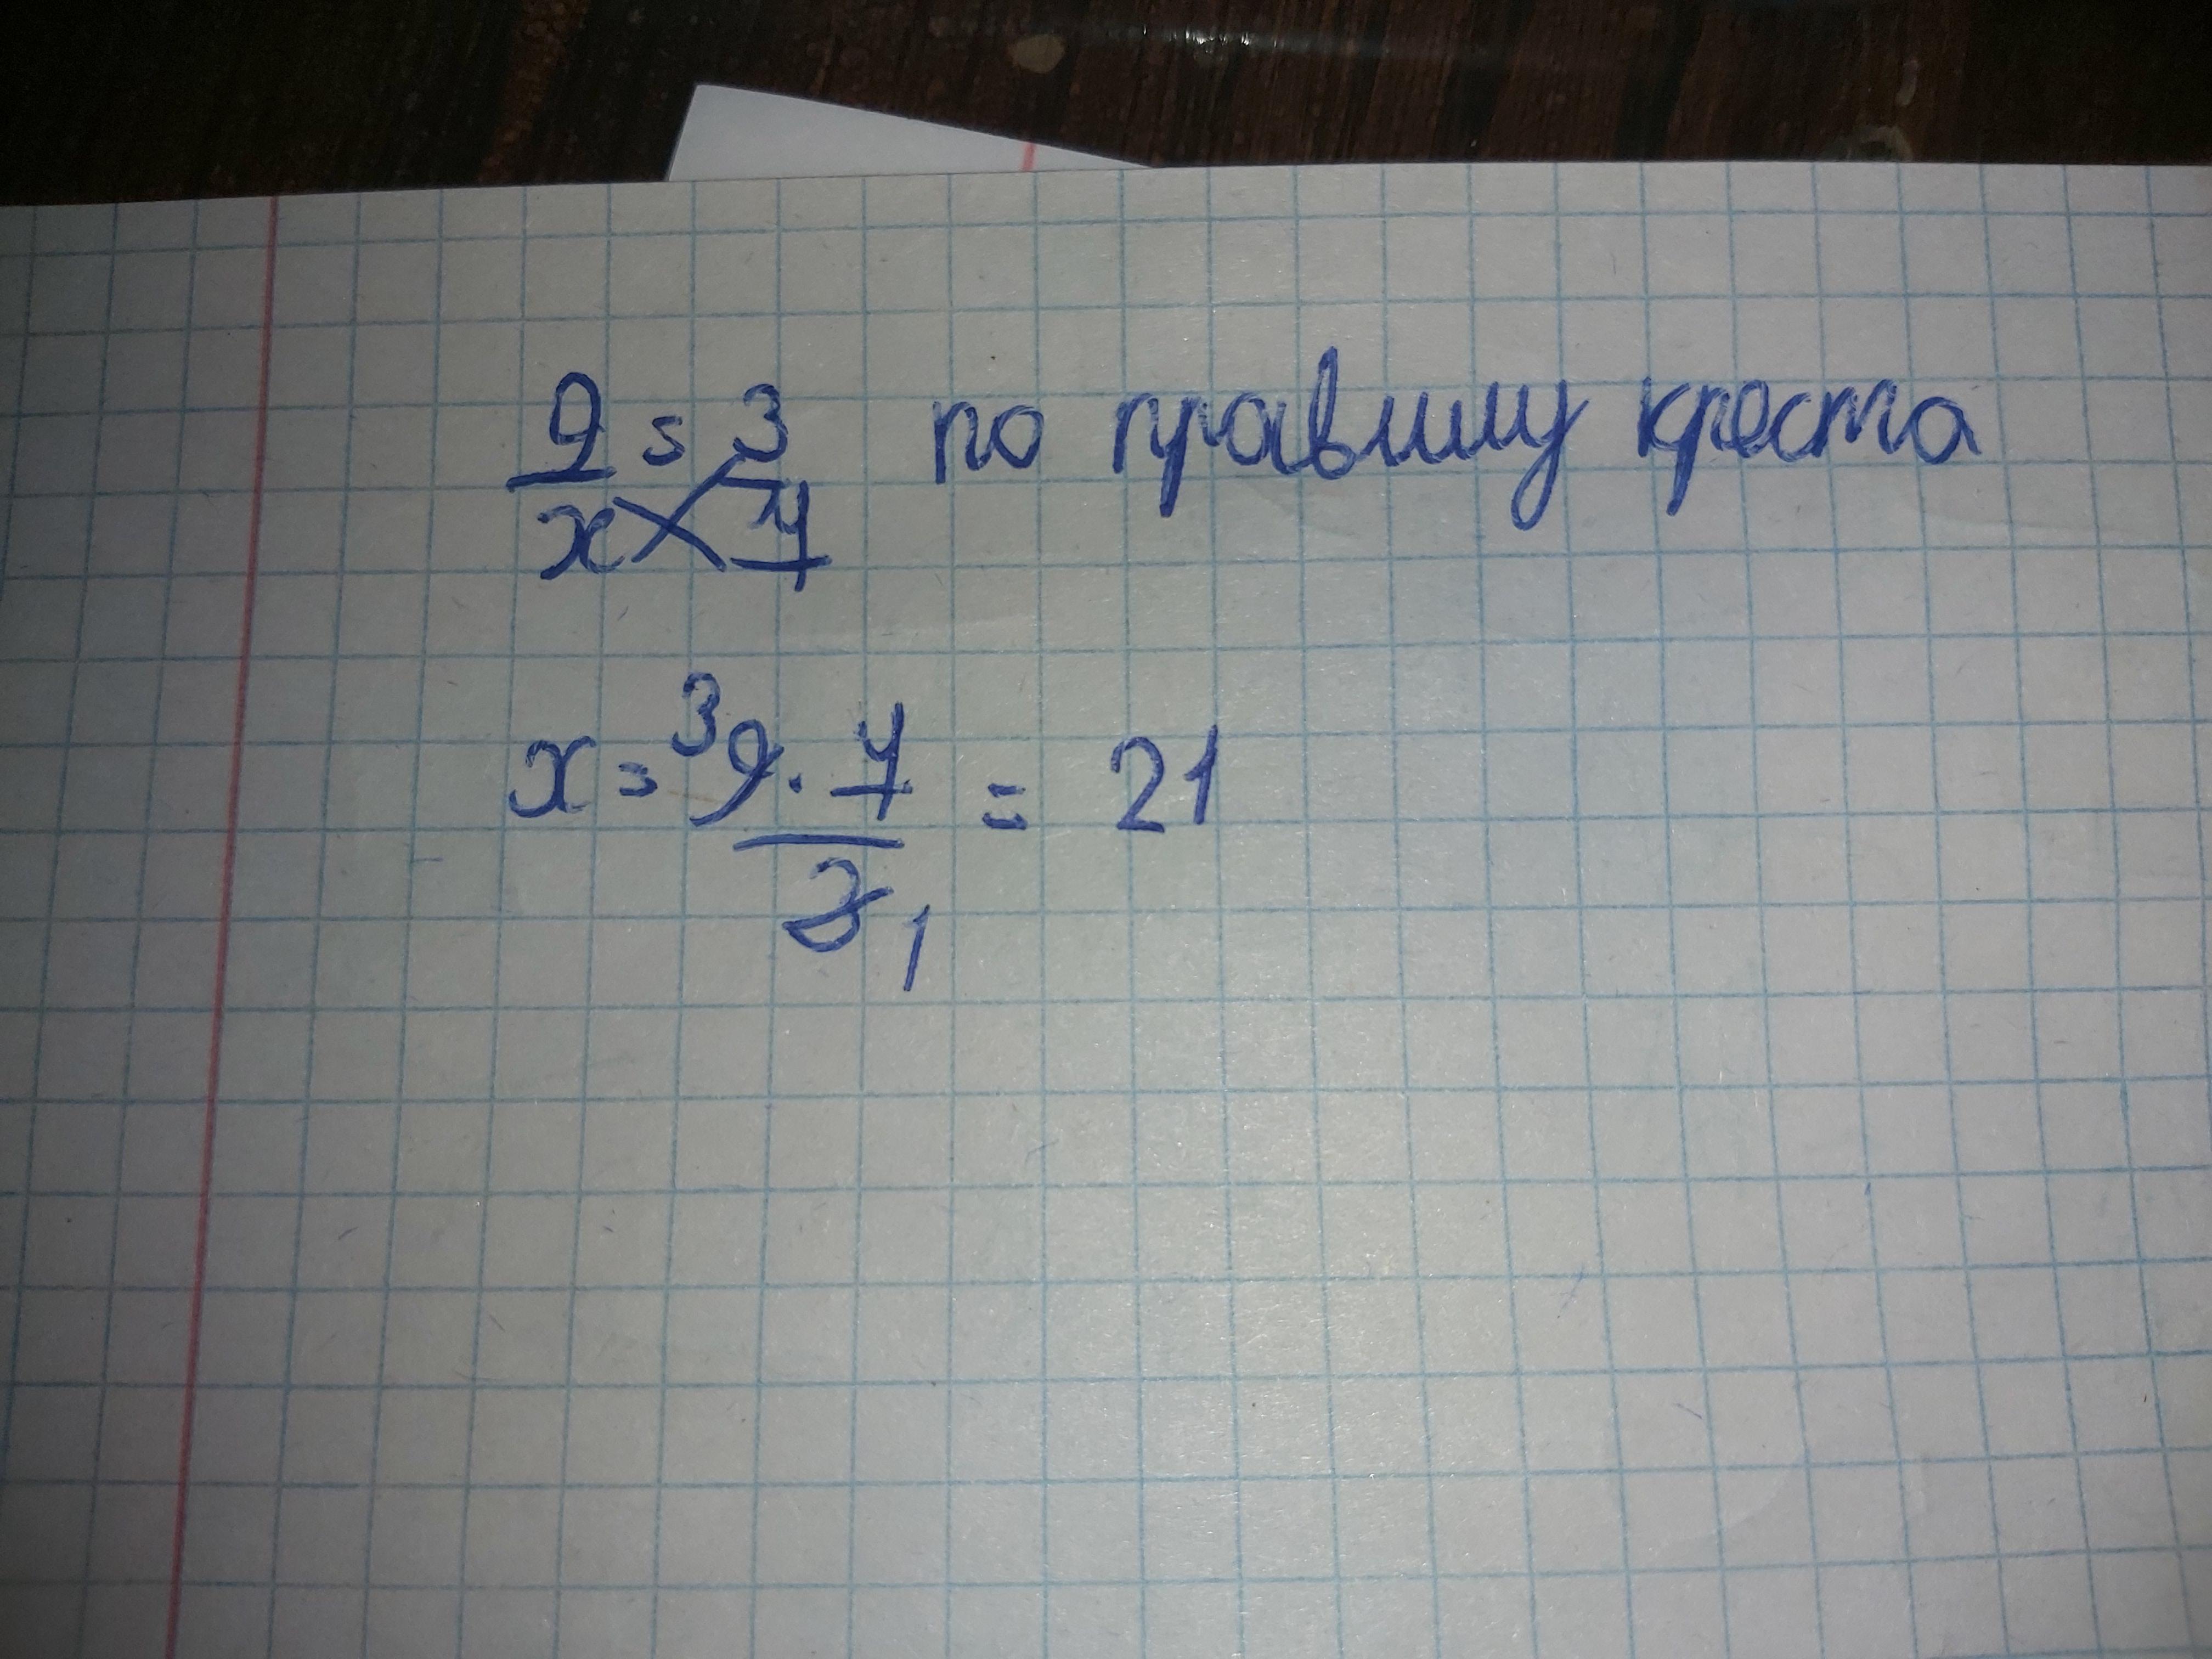 9/x = 3/7 по правилу креста
x = ³9 · 7 / 3₁ = 21